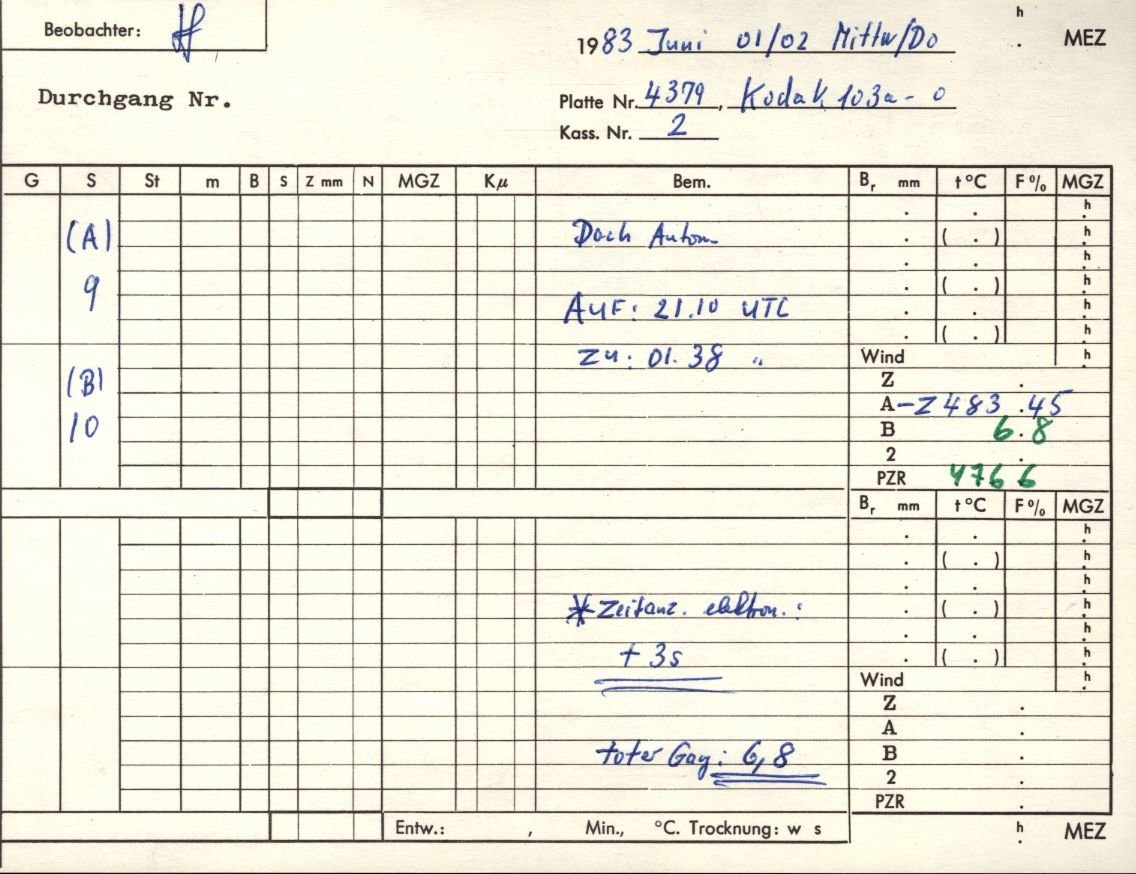 Beobachter:
h
1983 Juni 01/02 Mittw/Do . MEZ
Durchgang Nr.
Platte Nr. 4379, Kodak 103a-0
Kass. Nr. 2
G S St m B S Z mm N MGZ Kμ Bem. Br mm t °C F % MGZ
. . h
(A) Dach Autom. . ( . ) h
. . h
9 . ( . ) h
AUF: 21.10 UTC . . h
. ( . ) h
zu: 01.38 " Wind h
(B) Z .
A-Z 483.45
10 B 6.8
2 .
PZR 4766
Br mm t °C F % MGZ
. . h
. ( . ) h
. . h
* Zeitanz. elektron.: . ( . ) h
. . h
+ 3s . ( . ) h
Wind h
Z .
A .
toter Gag: 6,8 B .
2 .
PZR .
Entw.: , Min., °C. Trocknung: w s h . MEZ